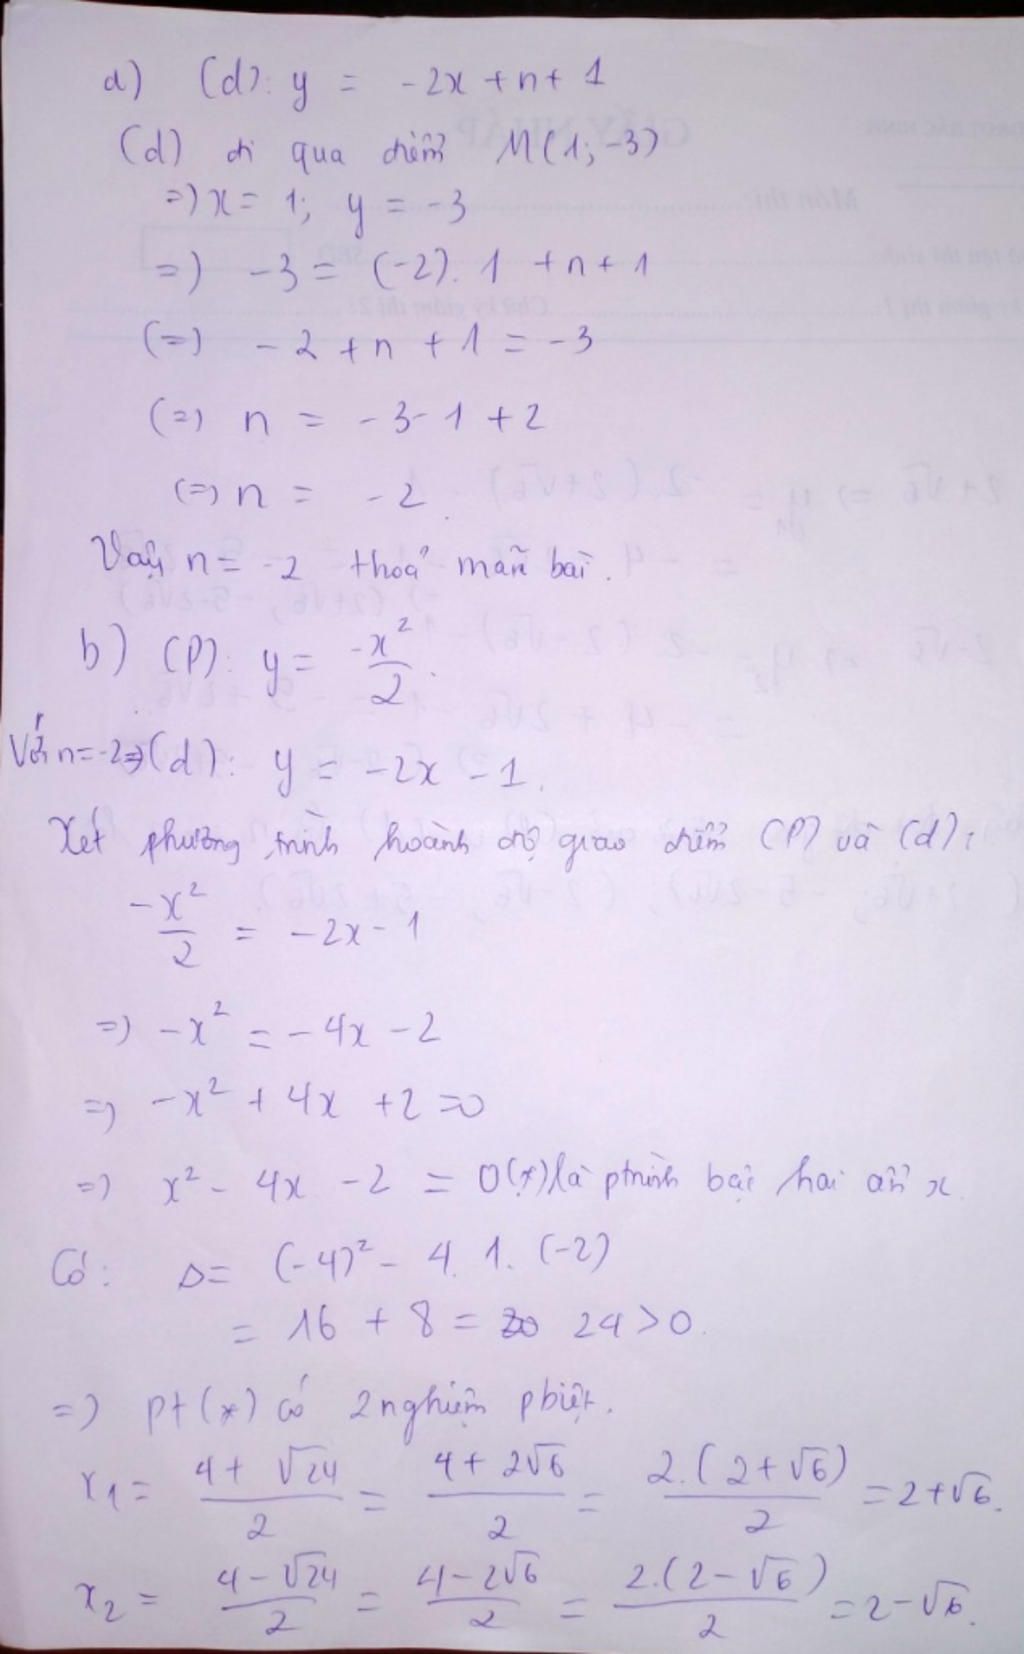 a) (d): y = -2x + n + 1
(d) đi qua điểm M(1; -3)
=> x = 1; y = -3
=> -3 = (-2). 1 + n + 1
(=) -2 + n + 1 = -3
(=) n = -3 - 1 + 2
(=> n = -2.
Vậy n = -2 thoả mãn bài.
b) (P): y = -x²/2.
Với n = -2 => (d): y = -2x - 1.
Xét phương trình hoành độ giao điểm (P) và (d):
-x²/2 = -2x - 1
=> -x² = -4x - 2
=> -x² + 4x + 2 = 0
=> x² - 4x - 2 = 0 (*) là ptrình bậc hai ẩn x.
Có: Δ = (-4)² - 4. 1. (-2)
= 16 + 8 = 24 > 0.
=> pt (*) có 2 nghiệm pbiệt.
x₁ = (4 + √24)/2 = (4 + 2√6)/2 = 2.(2 + √6)/2 = 2 + √6.
x₂ = (4 - √24)/2 = (4 - 2√6)/2 = 2.(2 - √6)/2 = 2 - √6.